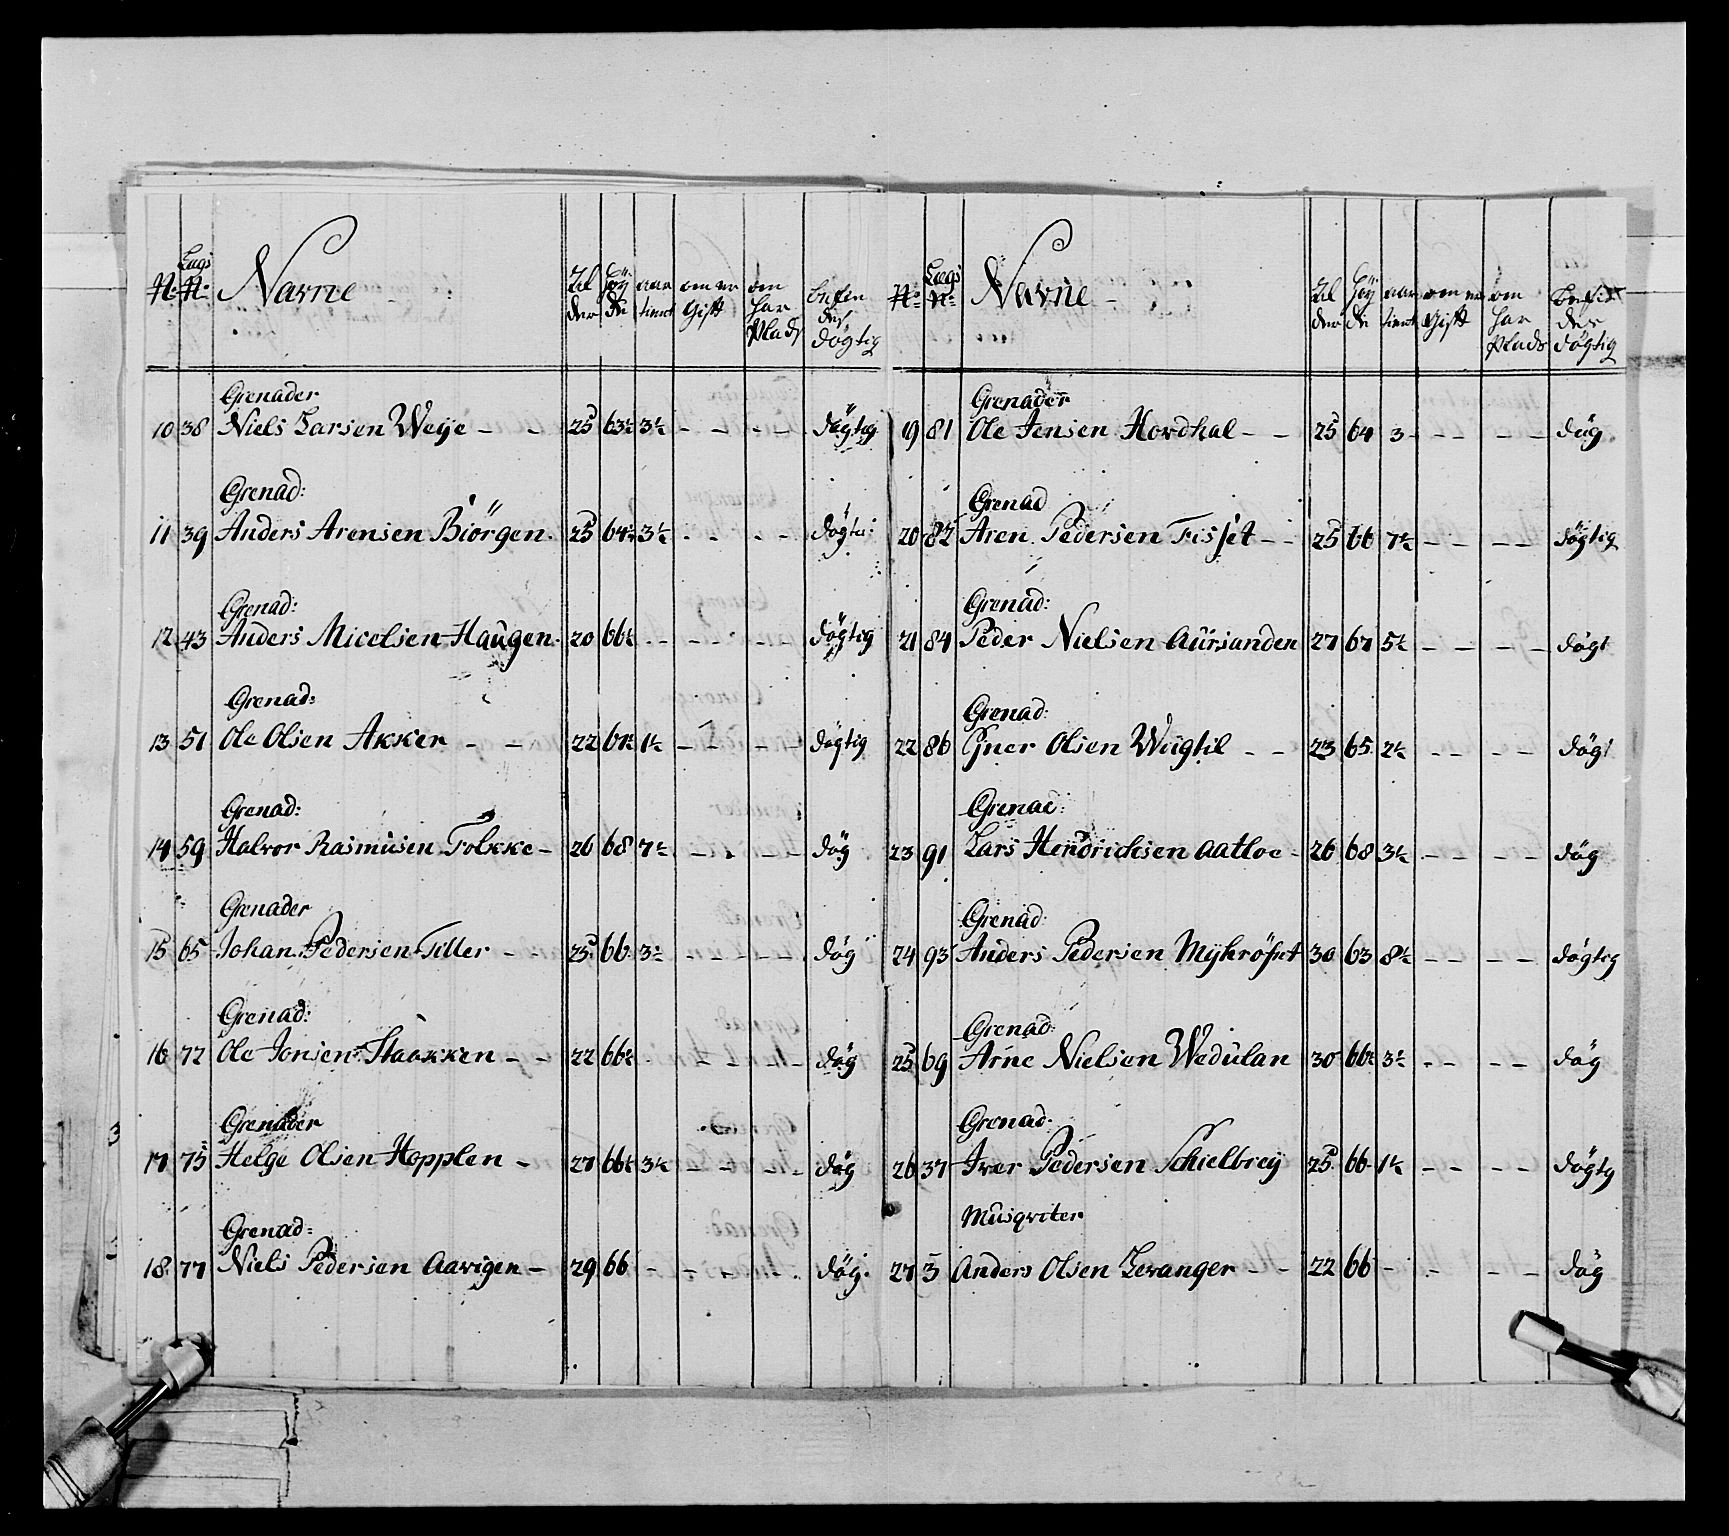 No Lægs No Navne Alder Høyde aar tient om er Gift om har Plads befindes døgtig
Grenader
10 38 Niels Larsen Weye - - 25 63½ 3½ - - - - døgtig
Grenad:
11 39 Anders Arensen Biörgen. 25 64½ 3½ - - - - døgti
Grenad:
12 43 Anders Micelsen Haugen. 20 66½ - - - - - døgtig
Grenad:
13 51 Ole Olsen Akker - - 22 67½ 1½ - - - - døgtig
Grenad:
14 59 Halvor Rasmusen Folkke - 26 68 7½ - - - - døg
Grenader
15 65 Johan Pedersen Tiller - - 25 66 3½ - - - - døg
Grenad:
16 72 Ole Jonsen Haakken - - 22 66½ - - - - døg
Grenader
17 75 Helge Olsen Hopplen - 27 66½ 3½ - - - - døg
Grenad:
18 77 Niels Pedersen Aavigen - 29 66 - - - - - døg.
No Lægs No Navne Alder Høyde aar tient om er Gift om har Plads befindes døgtig
Grenader
19 81 Ole Jensen Hordhal - - 25 64 3 - - - - døg.
Grenad
20 82 Aren Pedersen Fisset - - 25 66 7½ - - - - døgtig
Grenad:
21 84 Peder Nielsen Aursanden 27 67 5½ - - - - døgt
Grenad:
22 86 Olsen Wiigtil - - 23 65 2½ - - - - døgt
Grenad:
23 91 Lars Hendrichsen Aatloe - 26 68 3½ - - - - døg
Grenad:
24 93 Anders Pedersen Myhröset 30 63 8½ - - - - døgtig
Grenad:
25 69 Arne Nielsen Wedulan 30 66½ 3½ - - - - døg
Grenad:
26 37 Iver Pedersen Schielbrey 25 66 1½ - - - - døgtg
Musqviter
27 5 Anders Olsen Levanger - - 22 66 - - - - døg